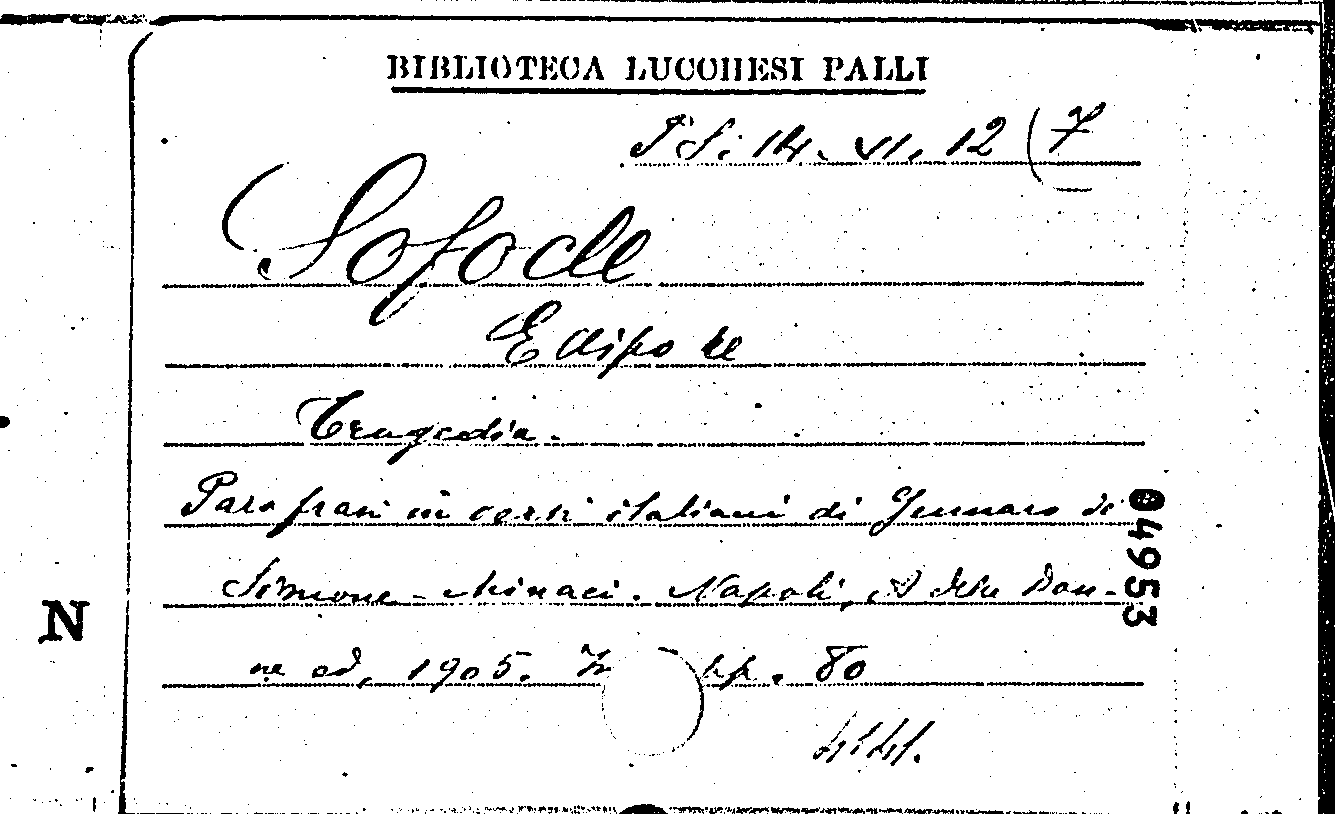 BIBLIOTECA LUCCHESI PALLI
14. VI. 12 (7
Sofocle
Edipo re
Tragedia.
Parafrasi in versi italiani di Gennaro de
Simone-Minaci. Napoli, A delle Don-
ne ed, 1905. In pp. 80
04953
N